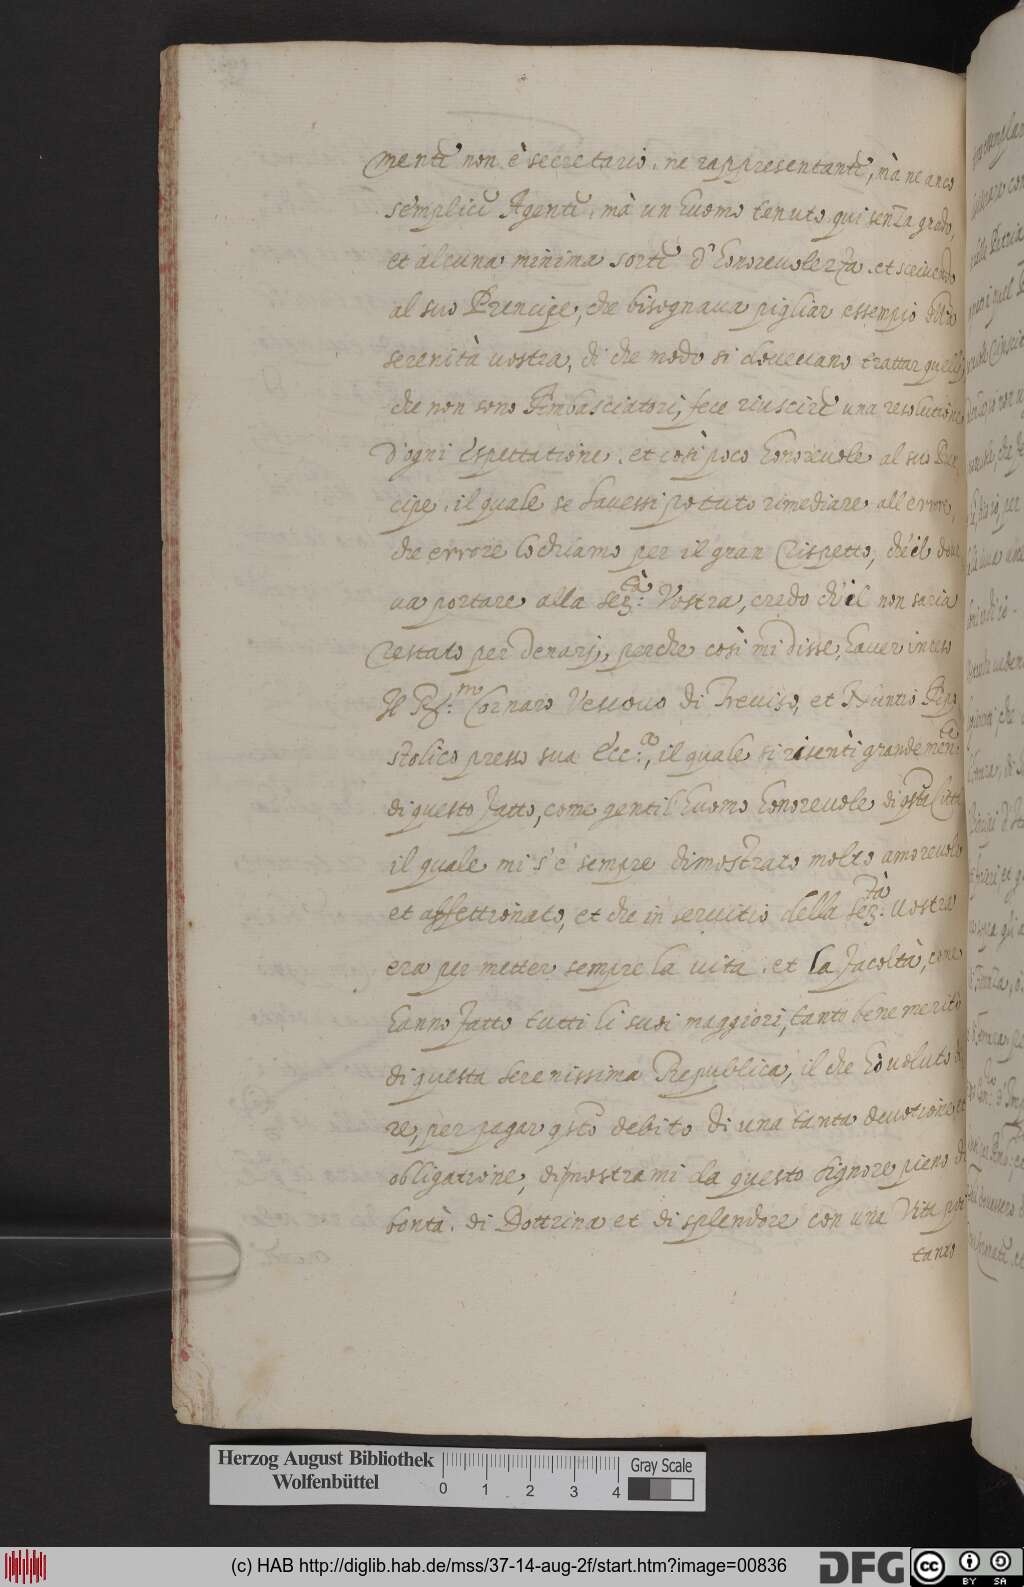 mente non è secretario, ne rappresentante, mà ne anco
semplice Agente, mà un huomo tenuto qui senza grado,
et alcuna minima sorte d'honorevolezza, et scrivendo
al suo Prencipe, che bisognava pigliar essempio dalla
serenità vostra, di che modo si dovevano trattar quelli
che non sono Ambasciatori, fece riuscire una resolutione
d'ogni espettatione, et così poco honorevole al suo Pren
cipe, il quale se havessi potuto rimediare all'errore,
che errore lo chiamo per il gran rispetto, ch'el dove
va portare alla Ser:tà Vostra, credo ch'il non saria
restato per Denari, perche così mi disse, haver inteso
Il Ref:mo Cornaro Vescovo di Treviso, et Nuntio Apo
stolico presso sua Ecc:a, il quale si risentì grandemen:te
di questo fatto, come gentil'huomo honorevole di qsta Città
il quale mi s'è sempre dimostrato molto amorevole
et affettionato, et che in servitio della Ser:tà vostra
era per metter sempre la vita, et la facoltà, come
hanno fatto tutti li suoi maggiori, tanto bene meriti
di questa Serenissima Republica, il che hò voluto di
re, per pagar qsto debito di una tanta devotione et
obligatione, dimostrami da questo signore pieno di
bontà, di Dottrina et di splendore con una Vita por
tanto
Herzog August Bibliothek
Wolfenbüttel
0 1 2 3 4
Gray Scale
(c) HAB http://diglib.hab.de/mss/37-14-aug-2f/start.htm?image=00836
DFG
cc BY SA